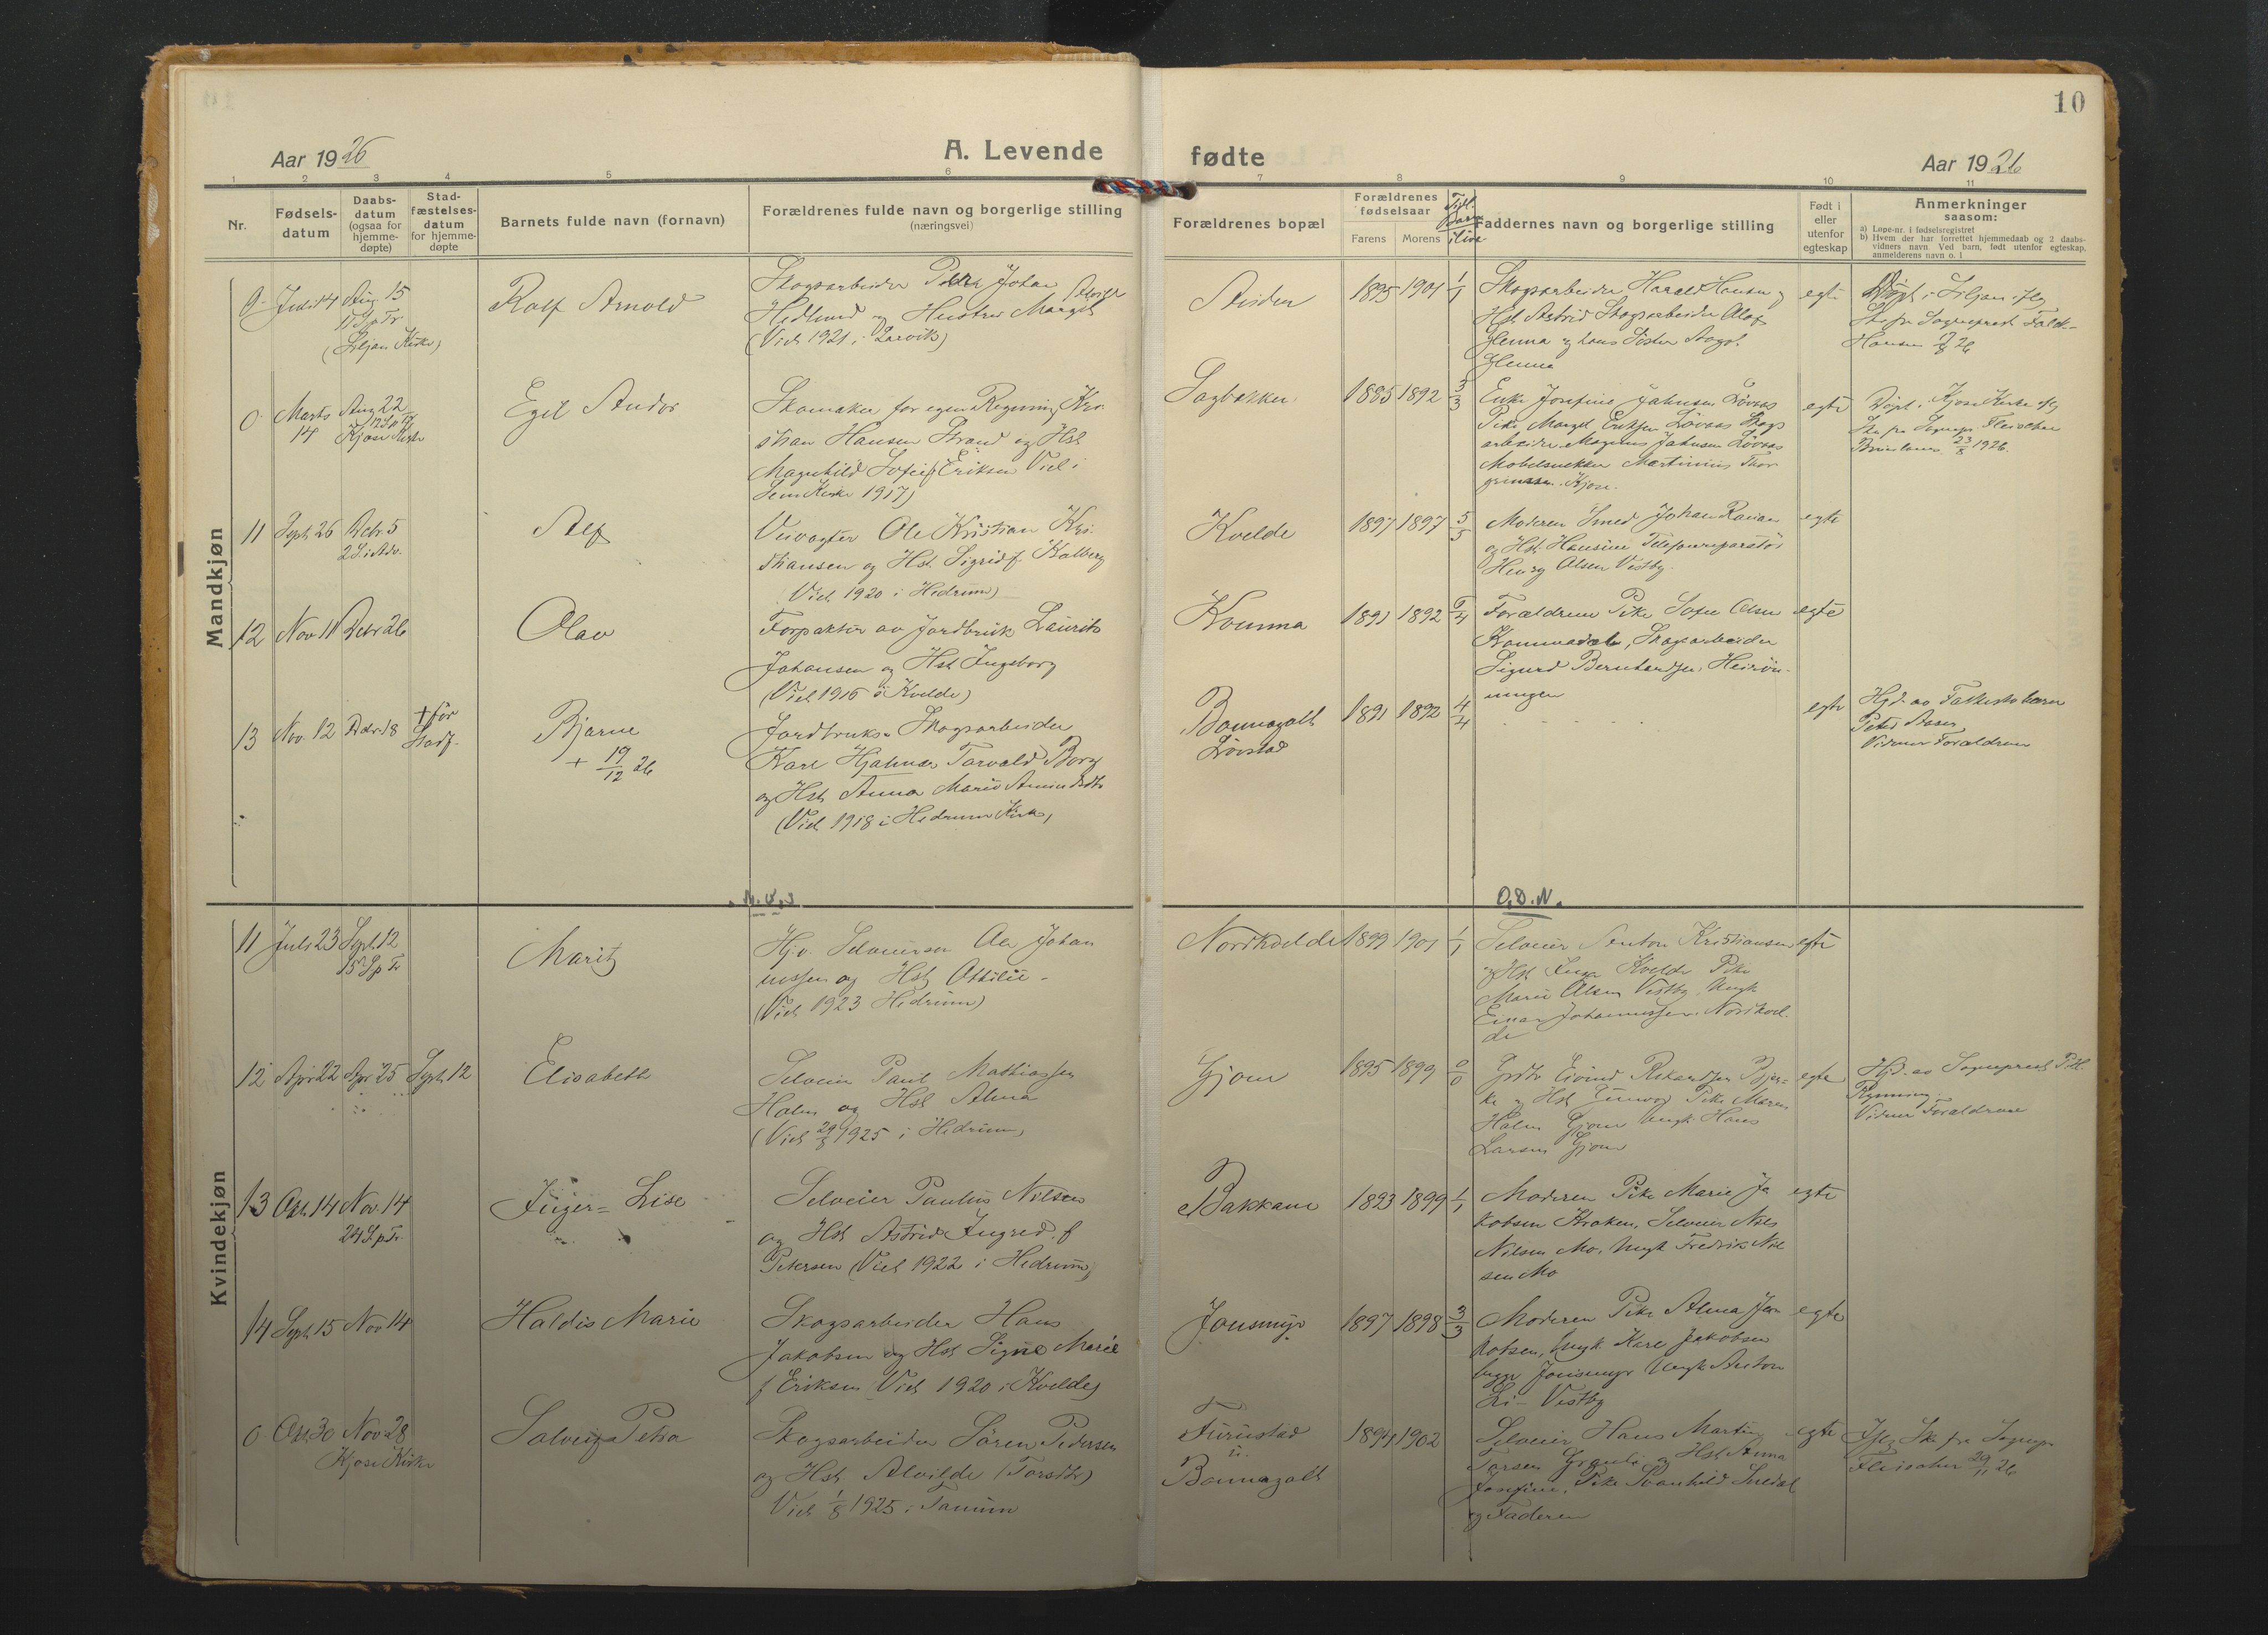 10
Aar 1926
A. Levende
fødte
Aar 1926
1 2 3 4 5 6 7 8 9 10 11
Nr.
Fødsels-
datum
Daabs-
datum
(ogsaa for
hjemme-
døpte)
Stad-
fæstelses-
datum
for hjemme-
døpte
Barnets fulde navn (fornavn)
Forældrenes fulde navn og borgerlige stilling
(næringsvei)
Forældrenes bopæl
Forældrenes
fødselsaar
Farens
Morens
Barn
ilive
Faddernes navn og borgerlige stilling
Født i
eller
utenfor
egteskap
Anmerkninger
saasom:
a) Løpe-nr. i fødselsregistret
b) Hvem der har forrettet hjemmedaab og 2 daabs-
vidners navn. Ved barn, født utenfor egteskap,
anmelderens navn o. l
Mandkjøn
0 Juli 14 Aug 15
(Siljan Kirke)
Rolf Arnold
Skogsarbeider Johan
Hedlund og Hustru Margit
(Viet 1921 i Larvik)
1895 1901 1/1
Skogsarbeider Harald Hansen og
Hst Astrid Skogsarbeider Olaf
Glenna og hans Søster Aagot
Glenna
egte
Døpt i Siljan iflg
Ske fra Sogneprest Falck-
Hansen 26
0 Marts 14 Aug 22
Kjose Kirke
Egil Andor
Skomaker for egen Regning Kri-
stian Hansen Strand og Hst
Magnhild Sofie f Eriksen Viet i
Sem Kirke 1917)
Sagbakken
1885 1892 3/3
Enke Josefine Jahnsen Løvaas
Pike Margit Eriksen Løvaas Skogs
arbeider Magnus Jahnsen Løvaas
Møbelsnekker Martinius Thor
grimsen Kjose
egte
Døpt i Kjose Kirke iflg
Ske fra Sognepr Fleischer
Brunlanes 23/8 1926.
11 Sept 26 Decbr. 5
2 S. i Adv.
Alf
Veivogter Ole Kristian Kri-
stiansen og Hst. Sigrid f. Kolberg
(Viet 1920 i Hedrum)
Kvelde
1897 1897 5/5
Moderen Smed Johan
og Hst. Hansine Telefonreparatør
Henry Olsen Vestby
egte
12 Nov 11 Decbr 26
Olav
Forpakter av Jordbruk Laurits
Johansen og Hst Ingeborg
(Viet 1915 i Kvelde)
Kvumma
1891 1892
Forældrene Pike Sofie Olsen
Skogsarbeider
Sigurd Berntsen, Heirøn-
ningen
egte
13 Nov. 12 Decbr 18 + før
Stadf.
Bjarne
+ 19/12 26
Jordbruks- Skogsarbeider
Karl Hjalmar Torvald Borg
og Hst Anna Marie
(Viet 1918 i Hedrum Kirke)
Bommagalt
Løvstad
1891 1892 4/4
egte
Hjd. av
Peter
Vidner Forældrene
N. V. S
O. D. N.
Kvindekjøn
11 Juli 23 Sept. 12
15 S p Tr
Marit
Johan
nessen og Hst Ottilie
(Viet 1923 Hedrum)
Nordkvelde
1899 1901 1/1
Selveier Anton Kristiansen
og Hst Inga Kvelde Pike
Marie Olsen Vestby Ungk
Einar Johannessen Nordkvel-
de
egte
12 Apr 22 Apr 25 Sept 12
Elisabeth
Selveier Paul Mathiassen
Holm og Hst Alma
(Viet 1925 i Hedrum)
Gjone
1895 1899 0/0
Grdbr Eivind Rikardsen Bjer-
ke og Hst Gunvor Pike Maren
Holm Gjone Ungk Hans
Larsen Gjone
egte
Hjd. av Sogneprest
Rynning
Vidner Forældrene
13 Okt. 14 Nov. 14
24 S p Tr.
Inger-Lise
Selveier Paulus Nilsen
og Hst Astrid Ingrid f
Petersen (Viet 1922 i Hedrum)
Bakkane
1893 1899 1/1
Moderen Pike Marie Ja
kobsen Kroken, Selveier Nils
Nilsen Mo, Ungk Fredrik Nil
sen Mo
egte
14 Sept 15 Nov 14
Haldis Marie
Skogsarbeider Hans
Jakobsen og Hst Signe Marie
f Eriksen Viet 1920 i Kvelde)
Jonsmyr
1897 1898 3/3
Moderen Pike Alma Ja
kobsen, Ungk Karl Jakobsen
begge Jonsmyr Ungk Anton
Li - Vestby
egte
0 Okt. 30 Nov 28
Kjose Kirke
Solveig Petra
Skogsarbeider Søren Pedersen
og Hst. Alvilde (Torsdtr)
Viet 1/8 1925 i Tanum
Furustad
u.
Bommagalt
1894 1902
Selveier Hans Martin
Torsen Granli og Hst Anna
Josefine, Pike Svanhild
og Faderen
egte
Iflg Ske fra Sognepr
Fleischer 29/11 26